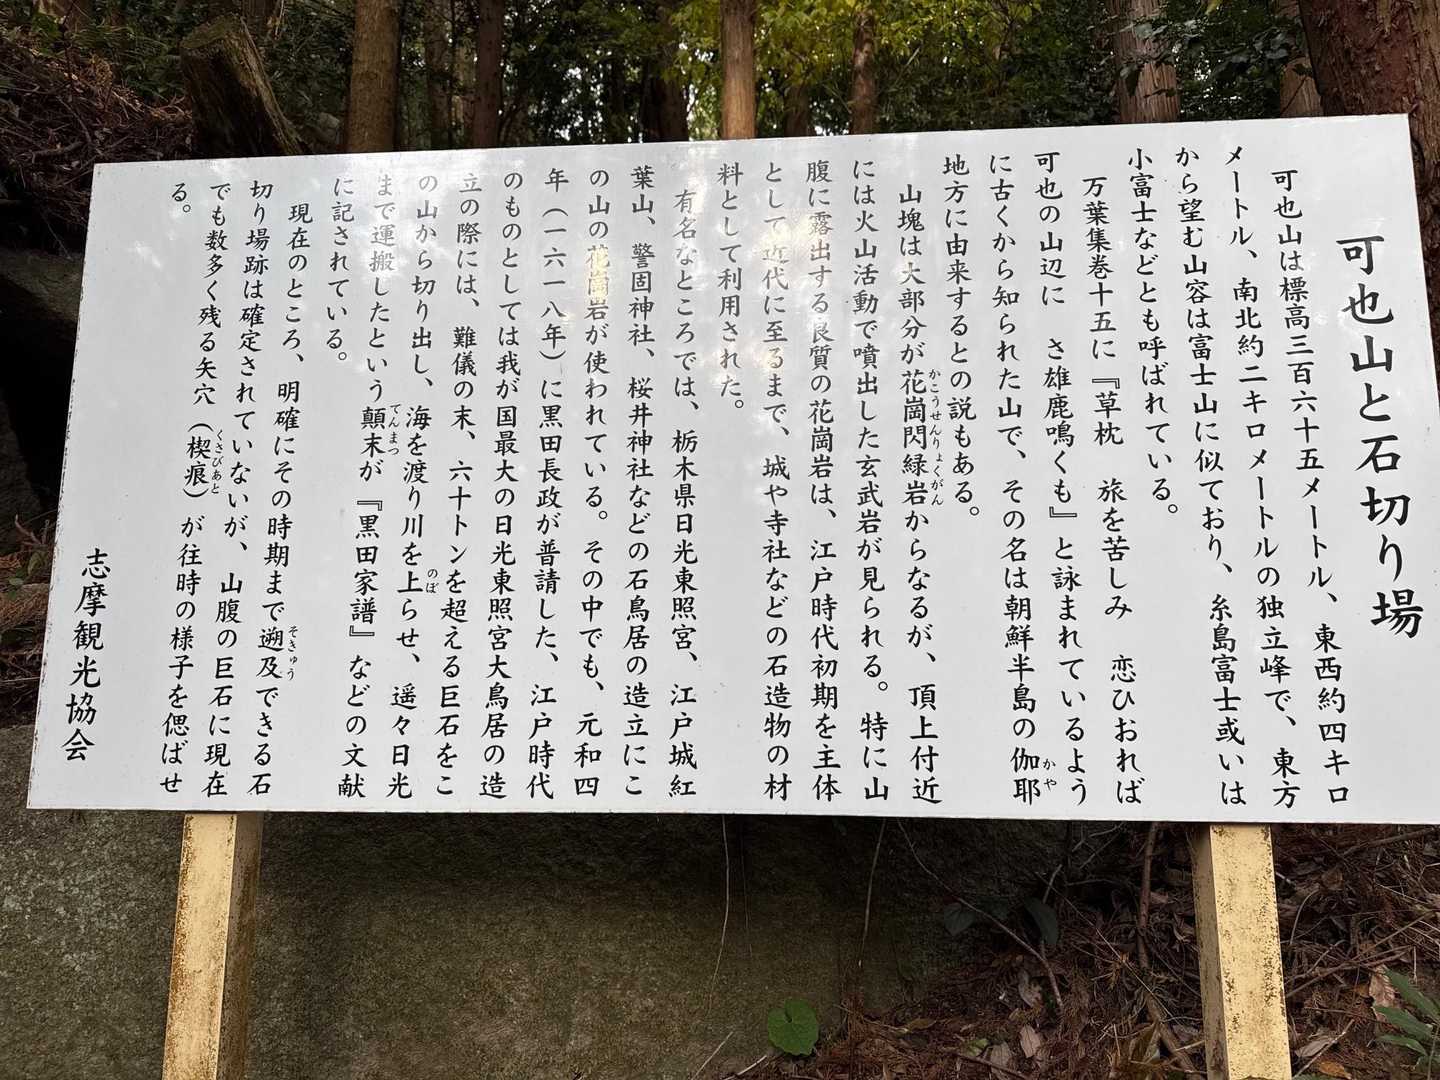 可也山と石切り場
可也山は標高三百六十五メートル、東西約四キロ
メートル、南北約二キロメートルの独立峰で、東方
から望む山容は富士山に似ており、糸島富士或いは
小富士などとも呼ばれている。
万葉集巻十五に『草枕 旅を苦しみ 恋ひおれば
可也の山辺に さ雄鹿鳴くも』と詠まれているよう
に古くから知られた山で、その名は朝鮮半島の伽耶かや
地方に由来するとの説もある。
山塊は大部分が花崗閃緑岩かこうせんりょくがんからなるが、頂上付近
には火山活動で噴出した玄武岩が見られる。特に山
腹に露出する良質の花崗岩は、江戸時代初期を主体
として近代に至るまで、城や寺社などの石造物の材
料として利用された。
有名なところでは、栃木県日光東照宮、江戸城紅
葉山、警固神社、桜井神社などの石鳥居の造立にこ
の山の花崗岩が使われている。その中でも、元和四
年(一六一八年)に黒田長政が普請した、江戸時代
のものとしては我が国最大の日光東照宮大鳥居の造
立の際には、難儀の末、六十トンを超える巨石をこ
の山から切り出し、海を渡り川を上のぼらせ、遥々日光
まで運搬したという顛末てんまつが『黒田家譜』などの文献
に記されている。
現在のところ、明確にその時期まで遡及そきゅうできる石
切り場跡は確定されていないが、山腹の巨石に現在
でも数多く残る矢穴(楔痕くさびあと)が往時の様子を偲ばせ
る。
志摩観光協会